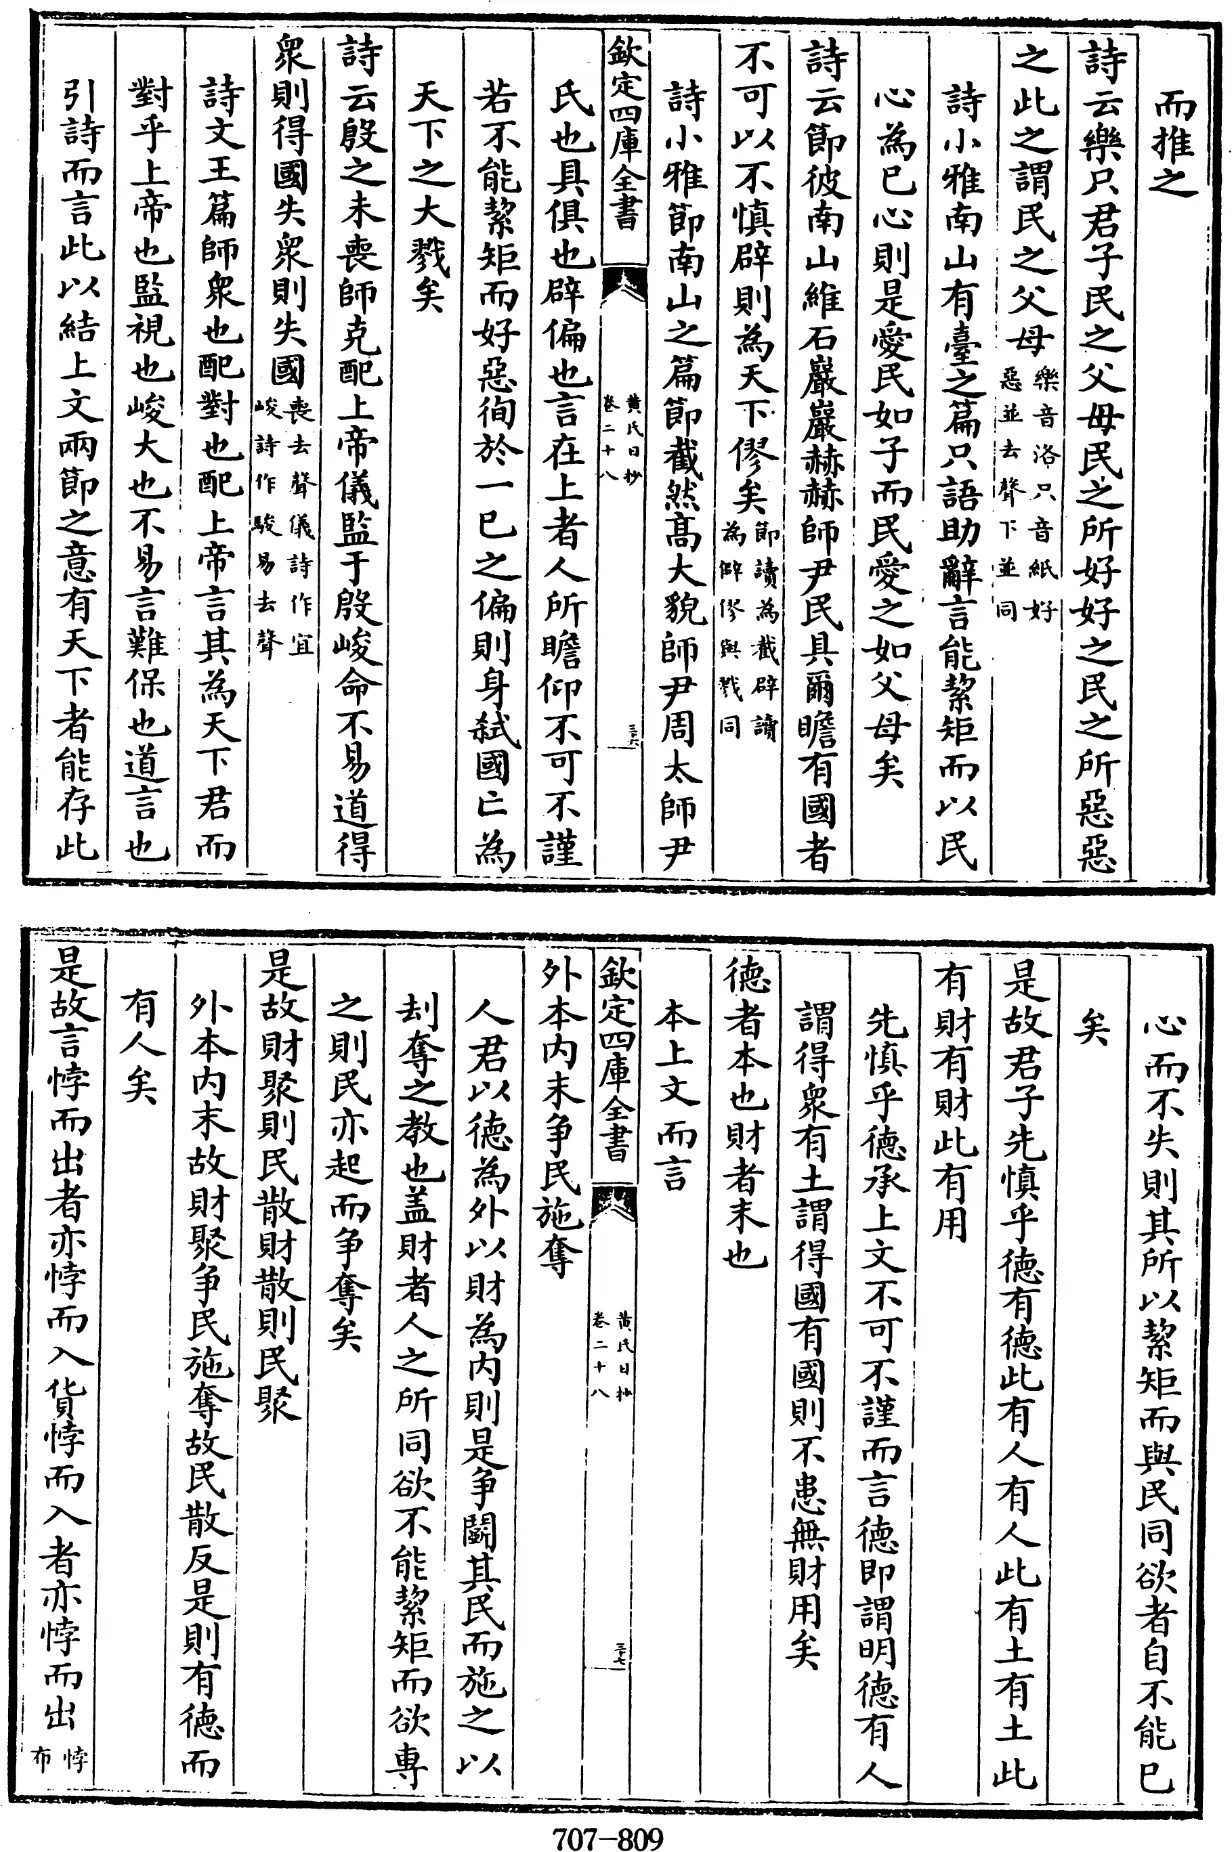 而推之
詩云樂只君子民之父母民之所好好之民之所惡惡
之此之謂民之父母樂音洛只音紙好惡並去聲下並同
詩小雅南山有臺之篇只語助辭言能絜矩而以民
心為已心則是愛民如子而民愛之如父母矣
詩云節彼南山維石巖巖赫赫師尹民具爾瞻有國者
不可以不慎辟則為天下僇矣節讀為截辟讀為僻僇與戮同
詩小雅節南山之篇節截然髙大貌師尹周太師尹
欽定四庫全書
黄氏日抄
卷二十八
三六
氏也具俱也辟偏也言在上者人所瞻仰不可不謹
若不能絜矩而好惡徇於一已之偏則身弑國亡為
天下之大戮矣
詩云殷之未喪師克配上帝儀監于殷峻命不易道得
衆則得國失衆則失國喪去聲儀詩作宜峻詩作駿易去聲
詩文王篇師衆也配對也配上帝言其為天下君而
對乎上帝也監視也峻大也不易言難保也道言也
引詩而言此以結上文兩節之意有天下者能存此
心而不失則其所以絜矩而與民同欲者自不能已
矣
是故君子先慎乎德有德此有人有人此有土有土此
有財有財此有用
先慎乎德承上文不可不謹而言德即謂明德有人
謂得衆有土謂得國有國則不患無財用矣
德者本也財者末也
本上文而言
外本内末争民施奪
欽定四庫全書
黄氏日抄
卷二十八
三七
人君以德為外以財為内則是争鬭其民而施之以
刦奪之教也盖財者人之所同欲不能絜矩而欲専
之則民亦起而争奪矣
是故財聚則民散財散則民聚
外本内末故財聚争民施奪故民散反是則有德而
有人矣
是故言悖而出者亦悖而入貨悖而入者亦悖而出悖布
707-809